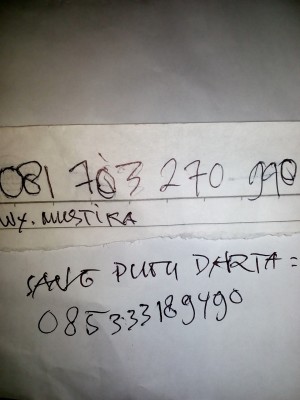 081 703 270 990
WY. MUSTIKA
SANG PUTU DARTA =
085333189490